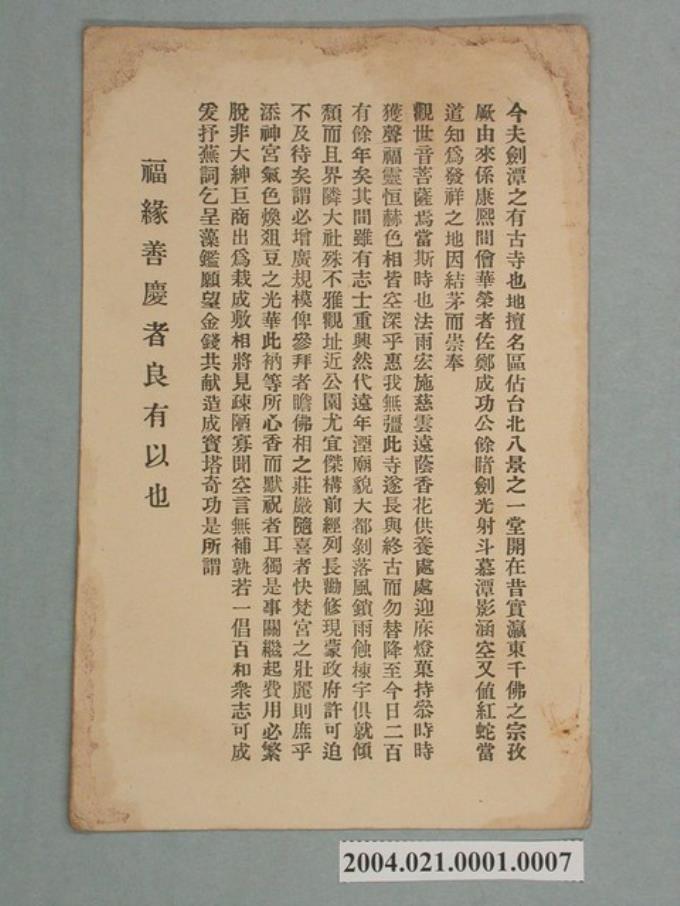 今夫劍潭之有古寺也地擅名區佔台北八景之一堂開在昔實瀛東千佛之宗孜
厥由來係康熙間僧華榮者佐鄭成功公餘睹劍光射斗慕潭影涵空又值紅蛇當
道知爲發祥之地因結茅而崇奉
觀世音菩薩焉當斯時也法雨宏施慈雲遠蔭香花供養處處迎庥燈菓持叅時時
獲聲福靈恒赫色相皆空深乎惠我無彊此寺遂長與終古而勿替降至今日二百
有餘年矣其間雖有志士重興然代遠年湮廟貌大都剝落風鎖雨蝕棟宇俱就傾
頽而且界隣大社殊不雅觀址近公園尤宜傑構前經列長勸修現蒙政府許可迫
不及待矣謂必增廣規模俾參拜者瞻佛相之莊嚴隨喜者快梵宮之壯麗則庶乎
添神宮氣色煥爼豆之光華此衲等所心香而默祝者耳獨是事關繼起費用必繁
脫非大紳巨商出爲栽成敷相將見疎陋寡聞空言無補孰若一倡百和衆志可成
爰抒蕪詞乞呈藻鑑願望金錢共献造成寳塔奇功是所謂
福緣善慶者良有以也
2004.021.0001.0007